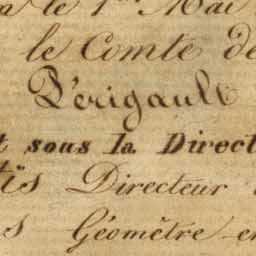 le 1er Mai
le Comte de
Périgault
sous la Direct
Directeur
s Géomêtre en